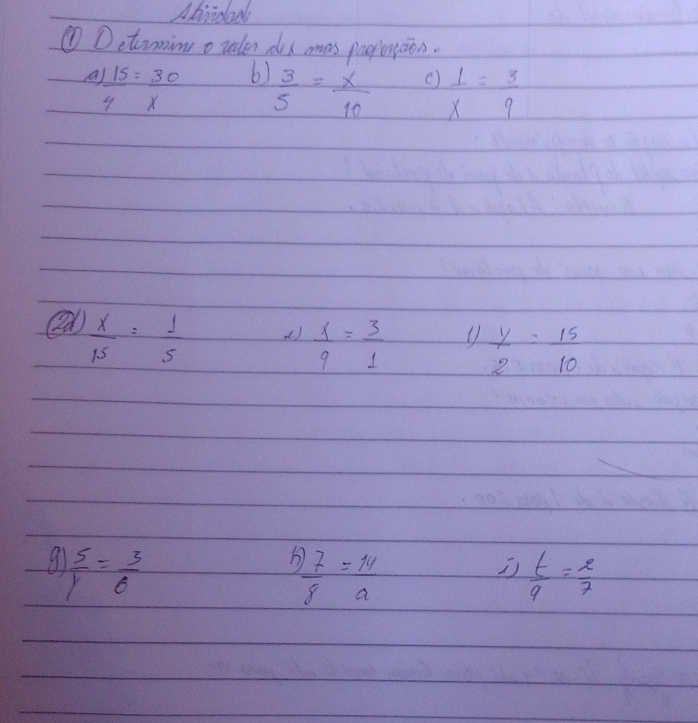 Atividade
① Determine o valor de x nas proporções.
a) 15/4 = 30/x b) 3/5 = x/10 c) 1/x = 3/9
②d) x/15 = 1/5 e) x/9 = 3/1 f) y/2 = 15/10
g) 5/y = 3/6 h) 7/8 = 14/a i) t/9 = 2/7